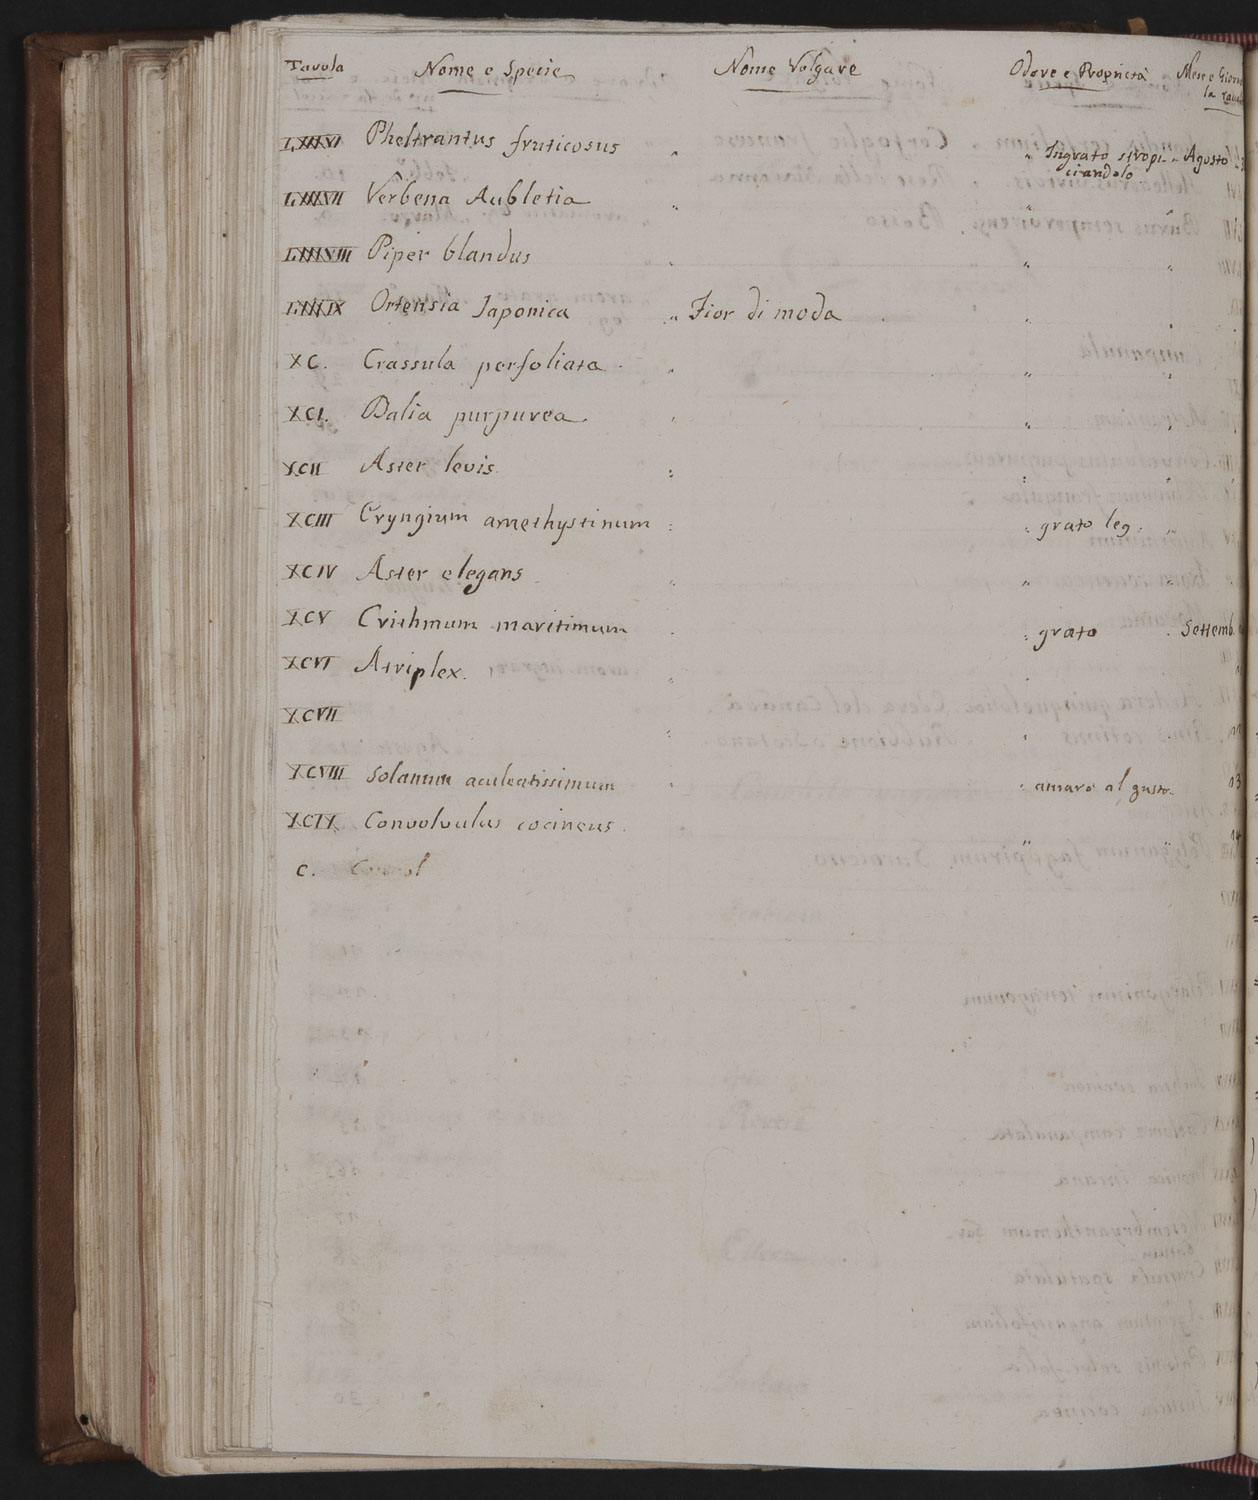 Tavola Nome e Specie Nome Volgare Odore e Proprietà Mese e Giorno
la
LXXXVI Pheltrantus fruticosus „ „ Ingrato stropi- „ Agosto
ciandolo
LXXXVII Verbena Aubletia „ „ „
LXXXVIII Piper blandus „ „ „
LXXXIX Ortensia Japonica „ Fior di moda „ „
XC. Crassula perfoliata „ „ „
XCI. Dalia purpurea „ „ „
XCII Aster levis „ „ „
XCIII Eryngium amethystinum „ „ grato leg. „
XCIV Aster elegans „ „ „
XCV Crithmum maritimum „ „ grato „ Settemb.
XCVI Atriplex. „ „ „
XCVII „ „ „
XCVIII Solanum aculeatissimum „ „ amaro al gusto. 13
XCIX Convolvulus cocineus. „ „ 14
C. Convol